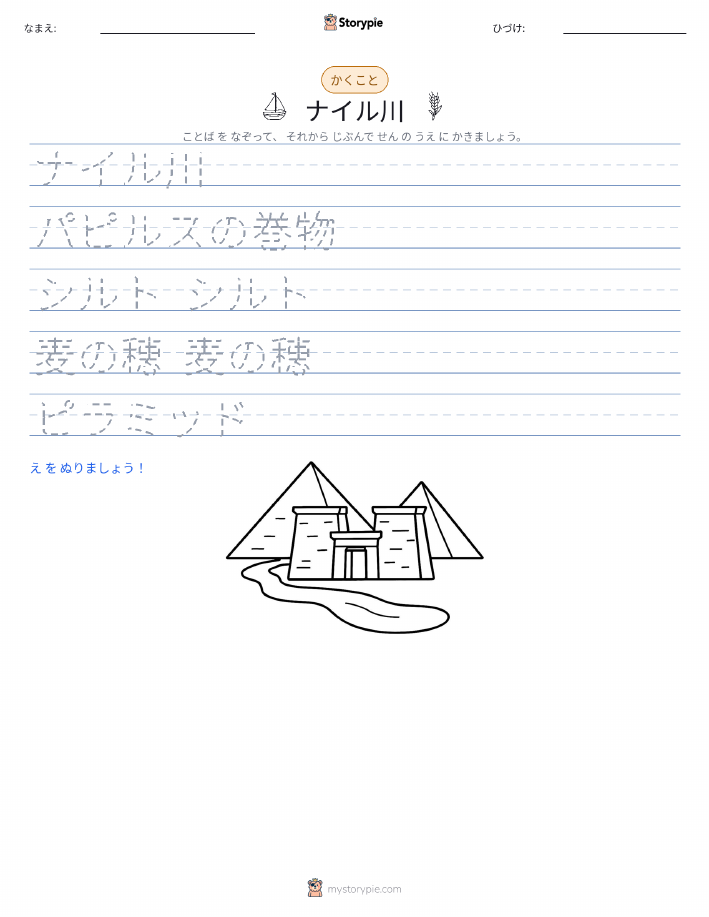 なまえ:
Storypie
ひづけ:
かくこと
ナイル川
ことば を なぞって、 それから じぶんで せん の うえ に かきましょう。
ナイル川
パピルスの巻物
シルト シルト
麦の穂 麦の穂
ピラミッド
え を ぬりましょう！
mystorypie.com